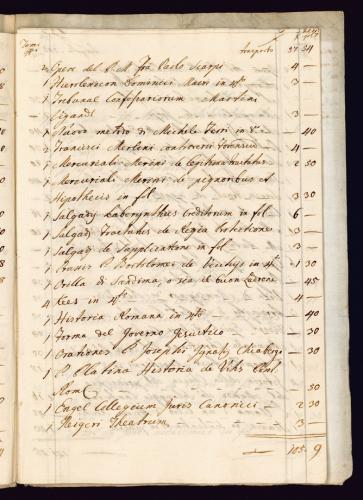 Trasporto 37 54
2 Opere del P. M. frà Paolo Scarpi 4 —
1 Hierolexicon Dominici Macri in 4º 3 —
1 Tribunal Confessariorum Martini
Vigandi 3 —
1 Nuovo metro di Michele in 8º — 40
2 Francisci Merlini controversiæ forenses 4 —
1 Mercuriali Merlini de legitima tractatus 2 50
1 Mercuriali Merlini de pignoribus et
Hipothecis in fol 3 30
1 Salgado Laberynthus creditorum in fol 6 —
1 Salgado Tractatus de Regia Protectione 3 —
1 Salgado de Supplicatione in fol 3 —
1 Francis P. Bortolomei de in 4º 1 30
1 di Sardima, o sia il buon — 45
4 in 4º 4 —
1 Historia Romana in 4to — 40
1 Forma del Governo Jesuitico — 30
1 Orationes P. Josephi Ignatij — 30
1 P. Platina Historia de Vitis Pont.
Rom — 50
1 Engel Collegium Juris Canonici 2 30
1 Theatrum 3 —
105 9